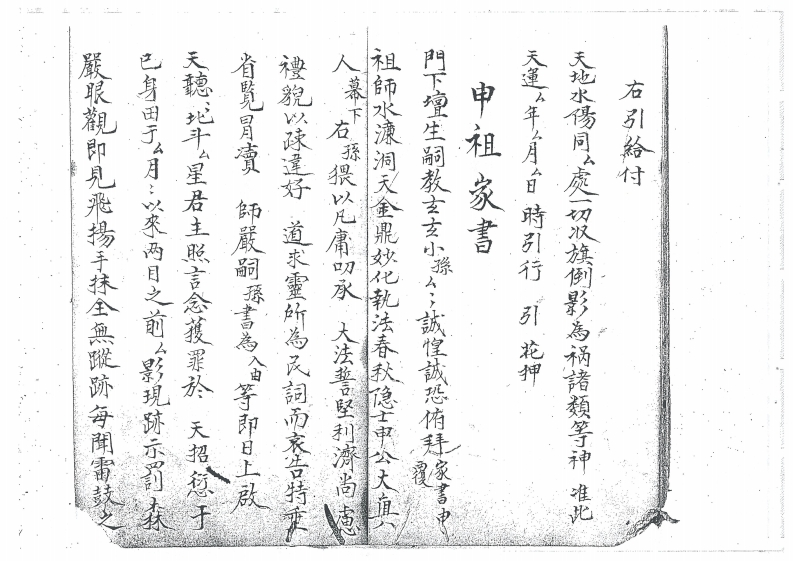 右引給付
天地水陽同厶處一切收旗倒影為禍諸類等神 准此
天運厶年厶月厶日 時引行 引 花押
申祖家書
門下壇生嗣教玄玄小孫厶〻誠惶誠恐俯拜家書申覆
祖師水濂洞天金鼎妙化執法春秋隐士申公大真人
人幕下 右孫猥以凡庸叨承 大法誓堅利濟尚慮
禮貌以疎違好 道求靈所為民詞而哀告特垂
省覧冐瀆 師嚴嗣孫書為入由等即日上啟
天聽〻北斗厶星君主照言念獲罪於 天招愆于
已身田于厶月〻以來两目之前厶影現跡示罰森
嚴眼觀即見飛揚手抹全無蹤跡每聞雷鼓之